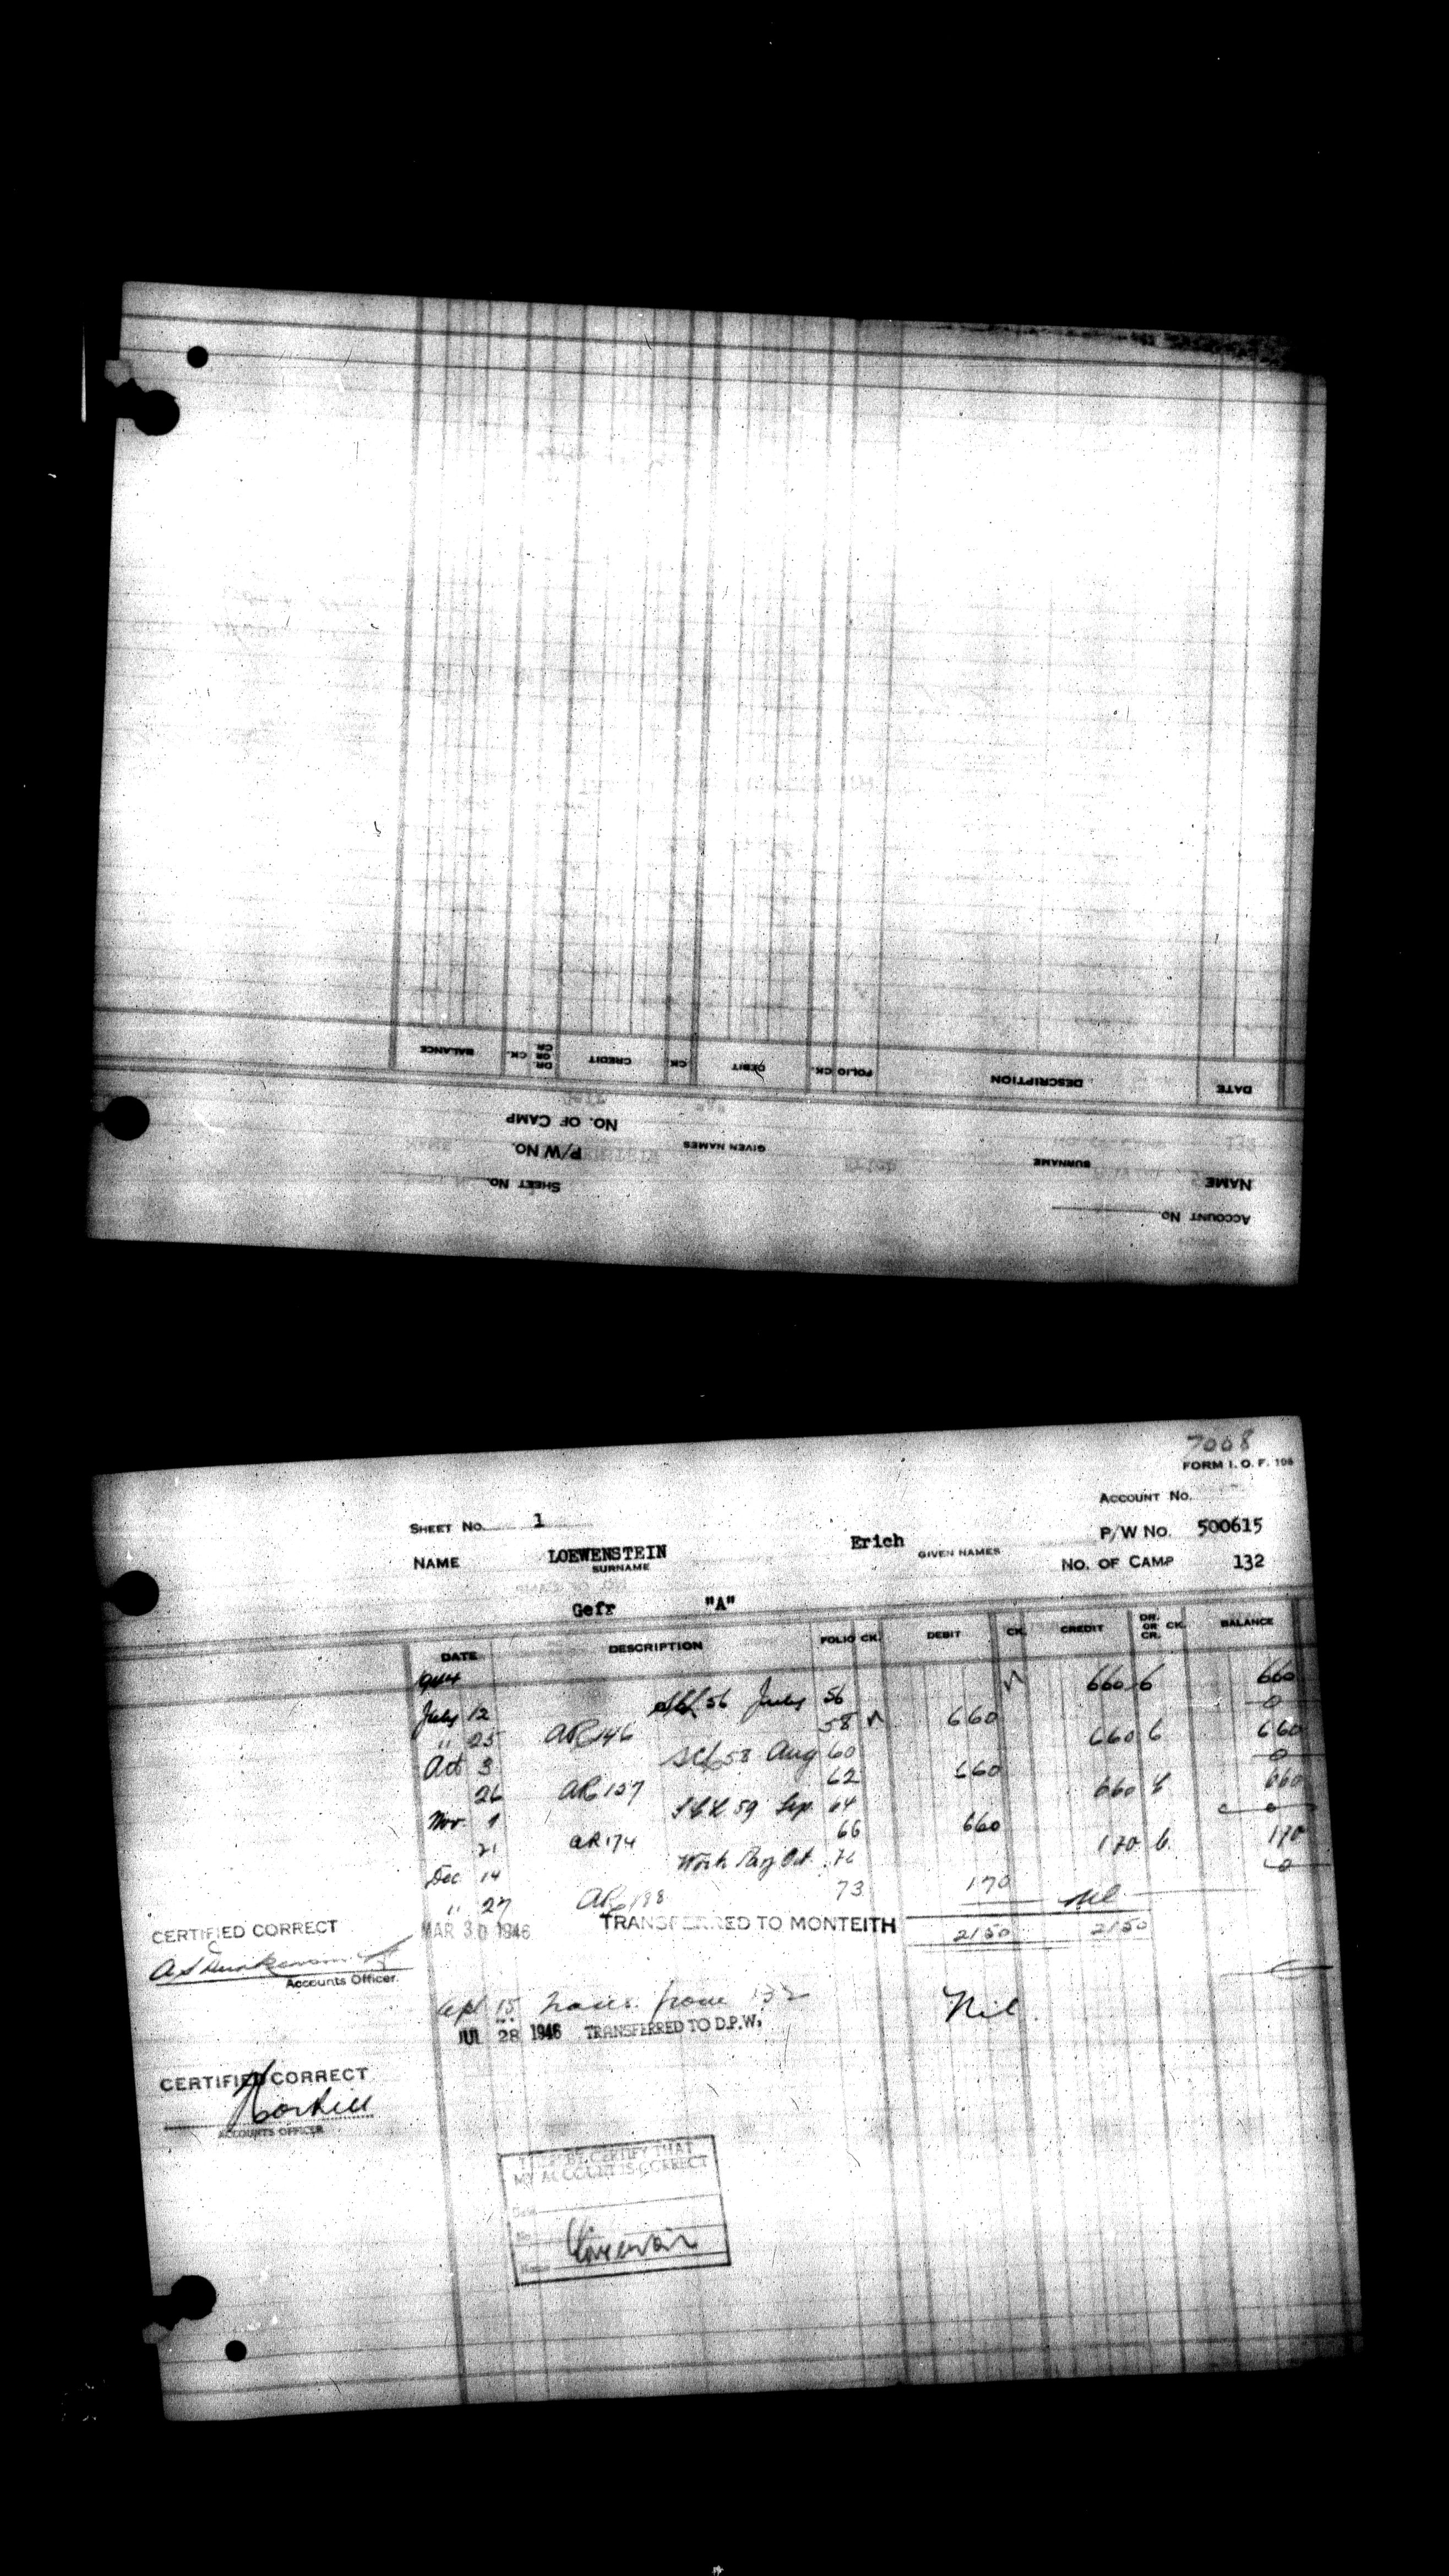 BALANCE CK. DR OR CR CREDIT CK. DEBIT FOLIO CK. DESCRIPTION DATE
NO. OF CAMP
P/W NO. GIVEN NAMES SURNAME NAME
SHEET No. ACCOUNT No.
7008
FORM I. O. F. 108
ACCOUNT No.
SHEET No. 1
P/W No. 500615
NAME LOEWENSTEIN Erich
SURNAME GIVEN NAMES
NO. OF CAMP 132
Gefr "A"
DATE DESCRIPTION FOLIO CK. DEBIT CK. CREDIT DR. OR CR. CK. BALANCE
July 12 56 July 56 660 660
" 25 AR 146 58 660 0
Oct 3 58 Aug 60 660 660
26 AR 157 62 660 0
Nov. 1 59 Sep. 64 660 660
21 AR 174 66 660 0
Dec 14 Work Pay Oct. 170 170
" 27 AR 188 73 170 0
Nil
CERTIFIED CORRECT
MAR 30 1946 TRANSFERRED TO MONTEITH 2150 2150
Accounts Officer.
Apl 15 Trans. from 132 Nil
JUL 28 1946 TRANSFERRED TO D.P.W.
CERTIFIED CORRECT
ACCOUNTS OFFICER
CERTIFY THAT
MY ACCOUNT IS CORRECT
Date
No.
Name